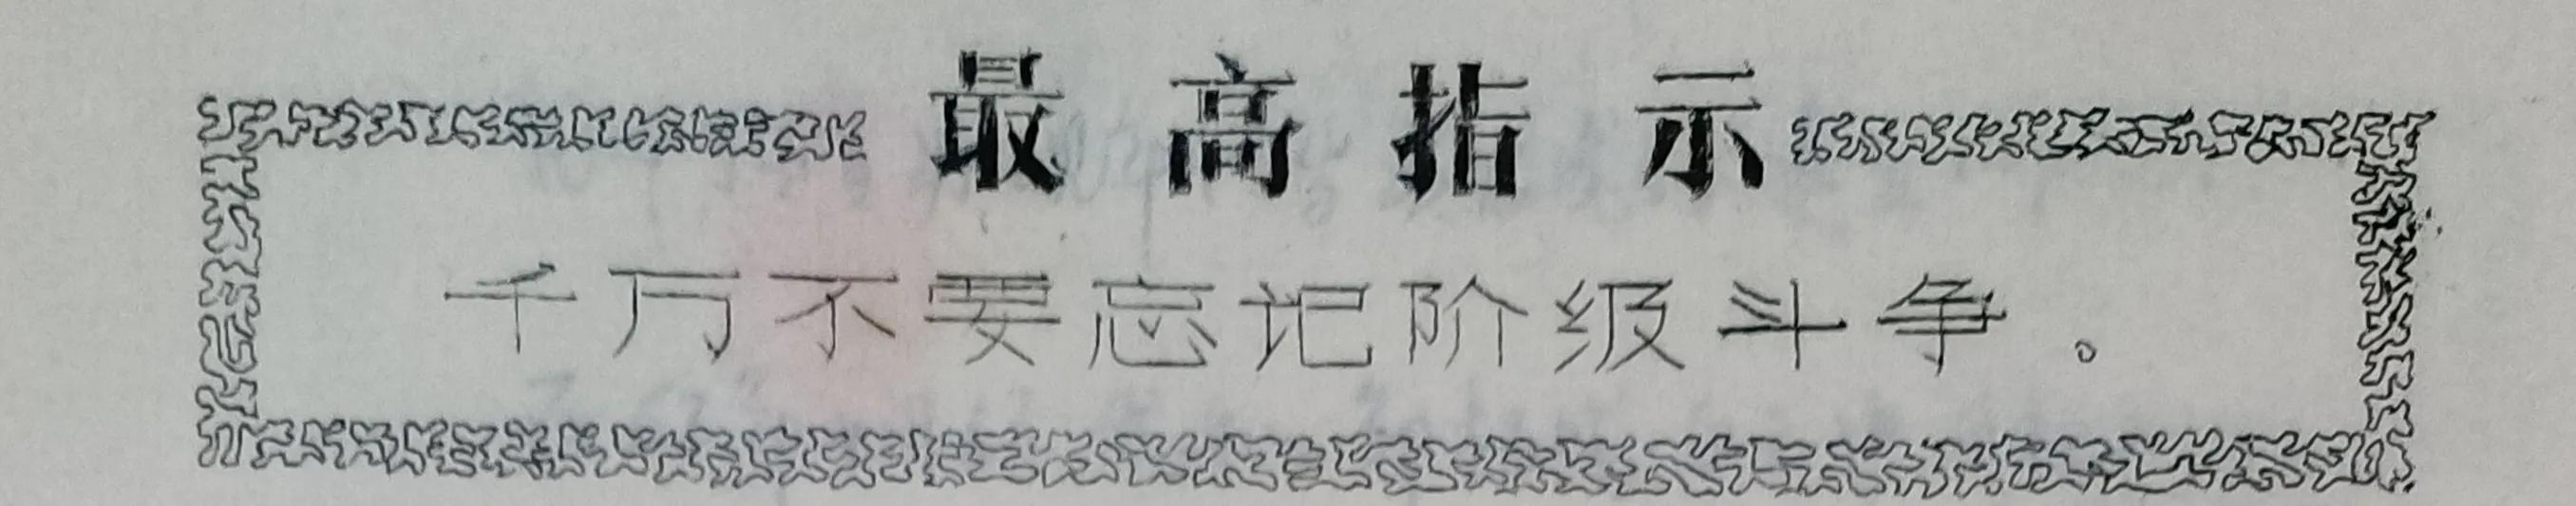 最高指示
千万不要忘记阶级斗争。